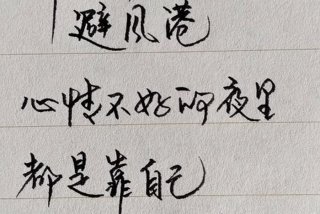 避风港
心情不好的夜里
都是靠自己